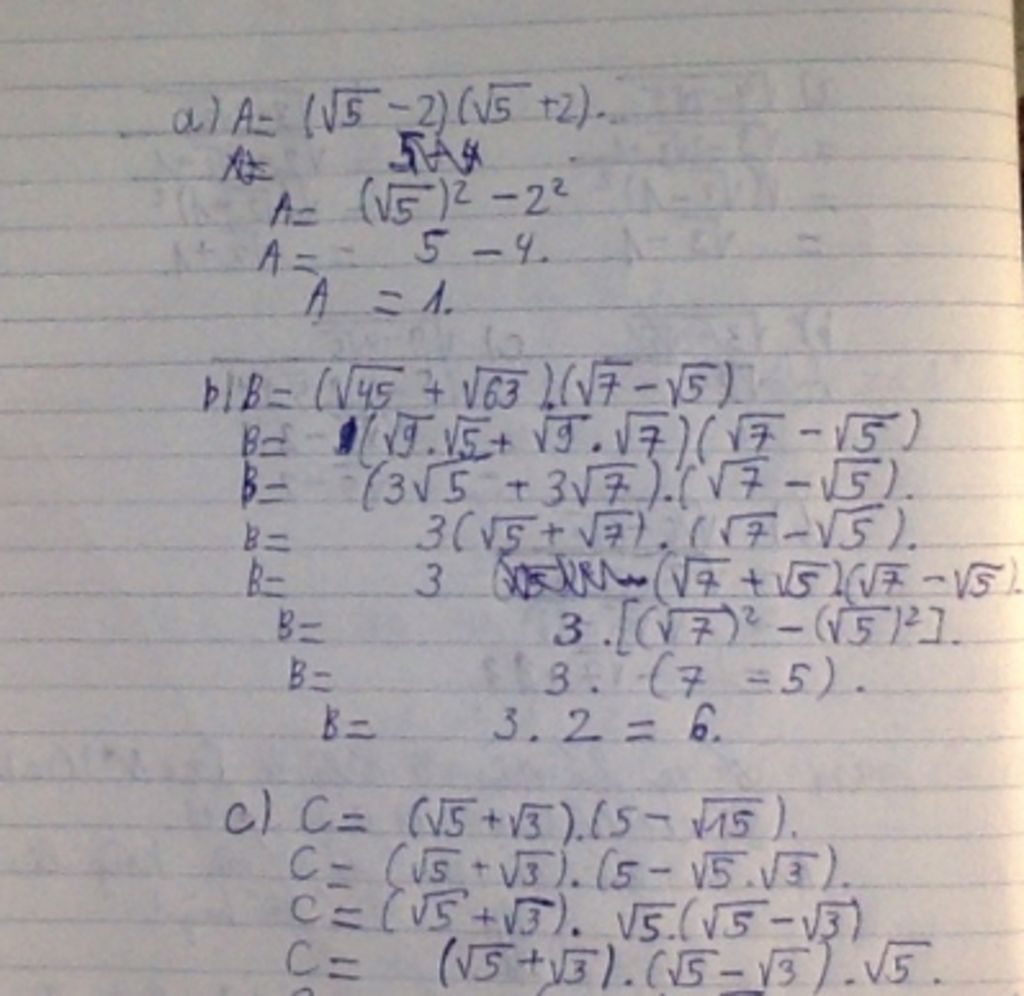 a) A= (√5 - 2)(√5 + 2).
A=
A= (√5)² - 2²
A= 5 - 4.
A = 1.
b) B= (√45 + √63).(√7 - √5)
B= (√9.√5 + √9.√7)(√7 - √5)
B= (3√5 + 3√7).(√7 - √5).
B= 3(√5 + √7).(√7 - √5).
B= 3 (√7 + √5)(√7 - √5).
B= 3.[(√7)² - (√5)²].
B= 3. (7 = 5).
B= 3. 2 = 6.
c) C= (√5 + √3).(5 - √15).
C= (√5 + √3).(5 - √5.√3).
C= (√5 + √3). √5.(√5 - √3)
C= (√5 + √3).(√5 - √3).√5.